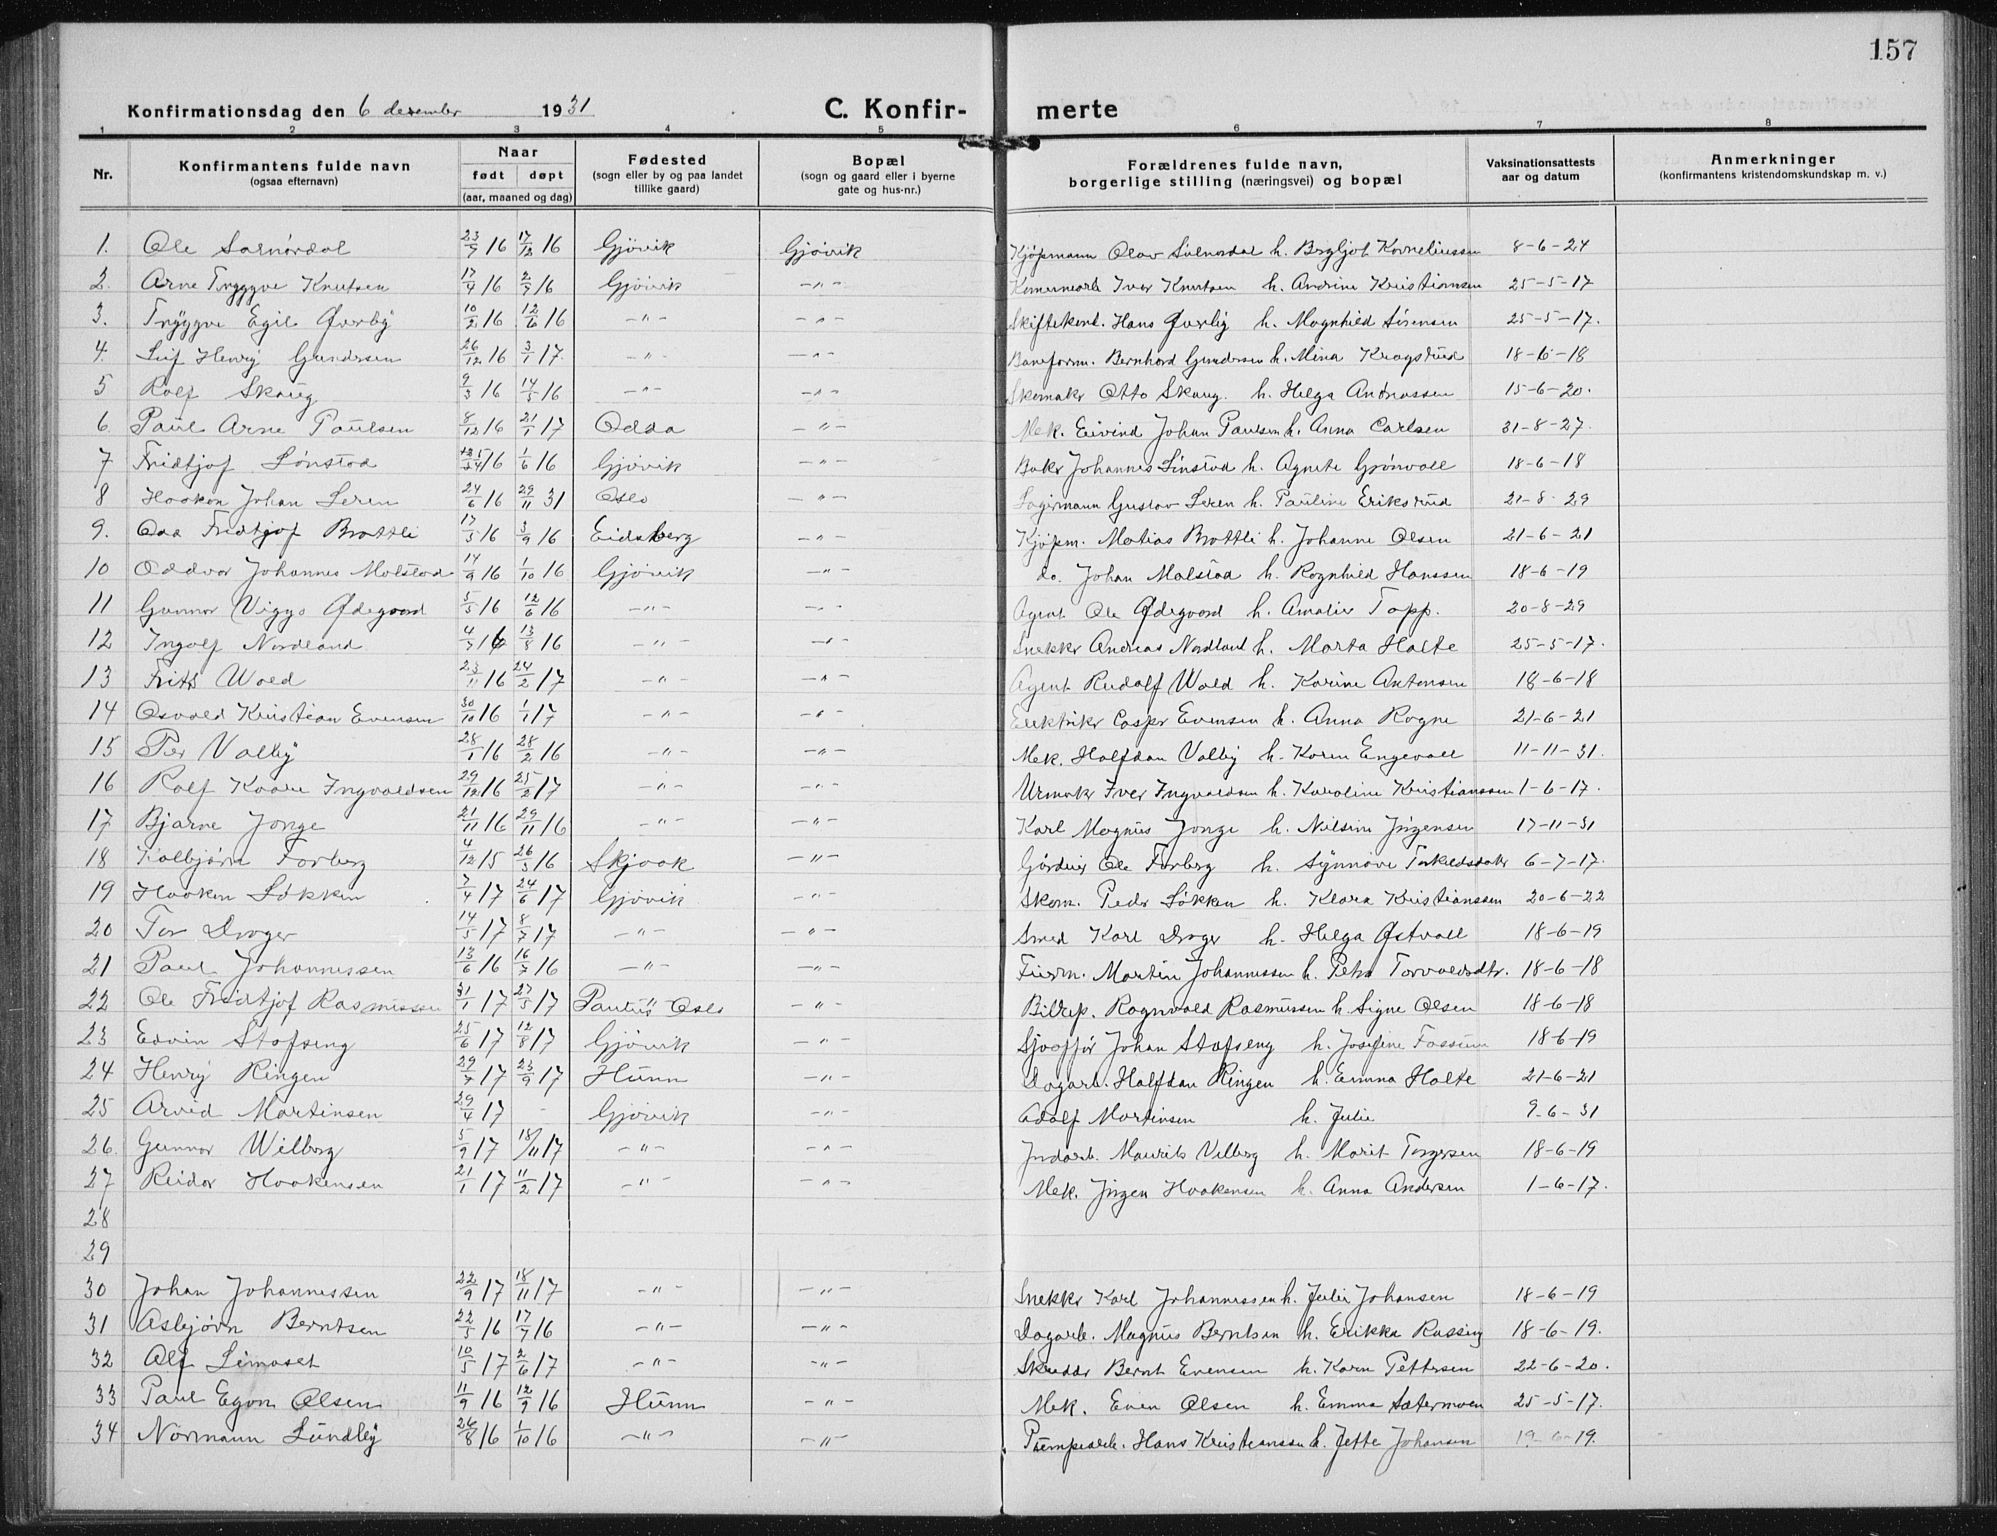 157
Konfirmationsdag den 6 desember 1931 C. Konfir- merte
1 2 3 4 5 6 7 8
Nr. Konfirmantens fulde navn (ogsaa efternavn) Naar født døpt (aar, maaned og dag) Fødested (sogn eller by og paa landet tillike gaard) Bopæl (sogn og gaard eller i byerne gate og hus-nr.) Forældrenes fulde navn, borgerlige stilling (næringsvei) og bopæl Vaksinationsattests aar og datum Anmerkninger (konfirmantens kristendomskundskap m. v.)
1. Ole 23/7 16 17/12 16 Gjövik Gjövik Kjøpmann Olav h. Bergljot Korneliussen 8-6-24
2. Arne Tryggve Knutsen 17/4 16 2/7 16 Gjövik -"- Iver Knutsen h. Andrine Kristiansen 25-5-17
3. Tryggve Egil Øverby 10/2 16 12/6 16 -"- -"- Skiftekont. Hans Øverby h. Magnhild Sörensen 25-5-17.
4. Leif Henry Gundersen 26/12 16 3/1 17. -"- -"- Baneform. Bernhard Gundersen h. Mina Kragsrud 18-6-18
5 Rolf Skaug 9/3 16 14/5 16 -"- -"- Skomakr Otto Skaug. h. Helga Andreassen 15-6-20.
6. Paul Arne Paulsen 8/12 16 21/1 17 Odda -"- Mek. Eivind Johan Paulsen h. Anna Carlsen 31-8-27.
7 Fridtjof Lönstad 16 1/6 16 Gjövik -"- Bakr Johannes Linstad h. Agnete Grönvall 18-6-18
8 Haakon Johan Leren 24/6 16 29/11 31 Oslo -"- Lagermann Gustav Leren h. Pauline Eriksrud 21-8-29
9. Odd Fridtjof Brattli 17/5 16 3/9 16 Eidsberg -"- Kjöpm. Matias Brattli h. Johanne Olsen 21-6-21
10 Oddvar Johannes Malstad 14/9 16 1/10 16 Gjövik -"- do. Johan Malstad h. Ragnhild Hanssen 18-6-19
11 Gunnar Viggo Ødegaard 5/5 16 12/6 16 -"- -"- Agent Ole Ødegaard h. Amalie Topp. 20-8-29
12 Ingolf Nordland 4/7 16 13/8 16 -"- -"- Snekkr Andreas Nordland h. Marta Halte 25-5-17.
13 Frits Wold 23/11 16 24/2 17 -"- -"- Agent Rudolf Wold h. Karine Antonsen 18-6-18
14 Osvald Kristian Evensen 30/10 16 1/1 17 -"- -"- Elektrikr Caspr Evensen h. Anna Rogne 21-6-21
15 Per Valby 28/1 16 28/2 16 -"- -"- Mek. Halfdan Valby h. Karen Engevall 11-11-31.
16 Rolf Kaare Ingvaldsen 29/12 16 25/2 17 -"- -"- Urmakr Iver Ingvaldsen h. Karoline Kristianssen 1-6-17.
17 Bjarne Jonge 21/11 16 29/11 16 -"- -"- Karl Magnus Jonge h. Nilsine Jörgensen 17-11-31
18 Kolbjörn Forberg 4/12 15 26/3 16 Skjaak -"- Ole Forberg h. Synnöve Torkildsdatr 6-7-17.
19 Haakon Løkken 7/4 17 24/6 17 Gjövik -"- Skom. Pedr Løkken h. Klara Kristianssen 20-6-22
20 Tor Droger 14/5 17 8/7 17 -"- -"- Smed Karl Droger h. Helga Østvall 18-6-19
21 Paul Johannessen 13/6 16 16/7 16 -"- -"- Firm. Martin Johannessen h. Petra Torvaldsdtr. 18-6-18
22 Ole Fridtjof Rasmussen 31/1 17 27/5 17 Paulus Oslo -"- Bilrep. Ragnvald Rasmussen h. Signe Olsen 18-6-18
23 Edvin Stofseng 25/6 17 12/8 17 Gjövik -"- Sjaafför Johan Stofseng h. Josefine Fossum 18-6-19
24 Henry Ringen 29/7 17 23/9 17 Hunn -"- Dagarb. Halfdan Ringen h. Emma Halte 21-6-21
25 Arvid Martinsen 29/4 17 - Gjövik -"- Adolf Martinsen h. Julie 9-6-31
26. Gunnar Wilberg 5/9 17 18/11 17 -"- -"- Indarb. Maurits Vilberg h. Marit Torgersen 18-6-19
27 Reidar Haakensen 21/1 17 11/2 17 -"- -"- Mek. Jörgen Haakensen h. Anna Andersen 1-6-17.
28
29
30 Johan Johannessen 22/9 17 18/11 17 -"- -"- Snekkr Karl Johannessen h. Julie Johansen 18-6-19
31 Asbjörn Berntsen 22/5 16 17/7 16 -"- -"- Dagarb. Magnus Berntsen h. Erikka Røssing 18-6-19.
32 Alf Limoset 10/5 17 2/6 17 -"- -"- Skreddr Bernt Evensen h. Karn Pettrsen 22-6-20.
33 Paul Egon Olsen 11/9 16 12/9 16 Hunn -"- Mek. Even Olsen h. Emma Sætermoen 25-5-17.
34 Normann Lundby 26/8 16 1/10 16 -"- -"- Hans Kristianssen h. Jette Johansen 19-6-19.